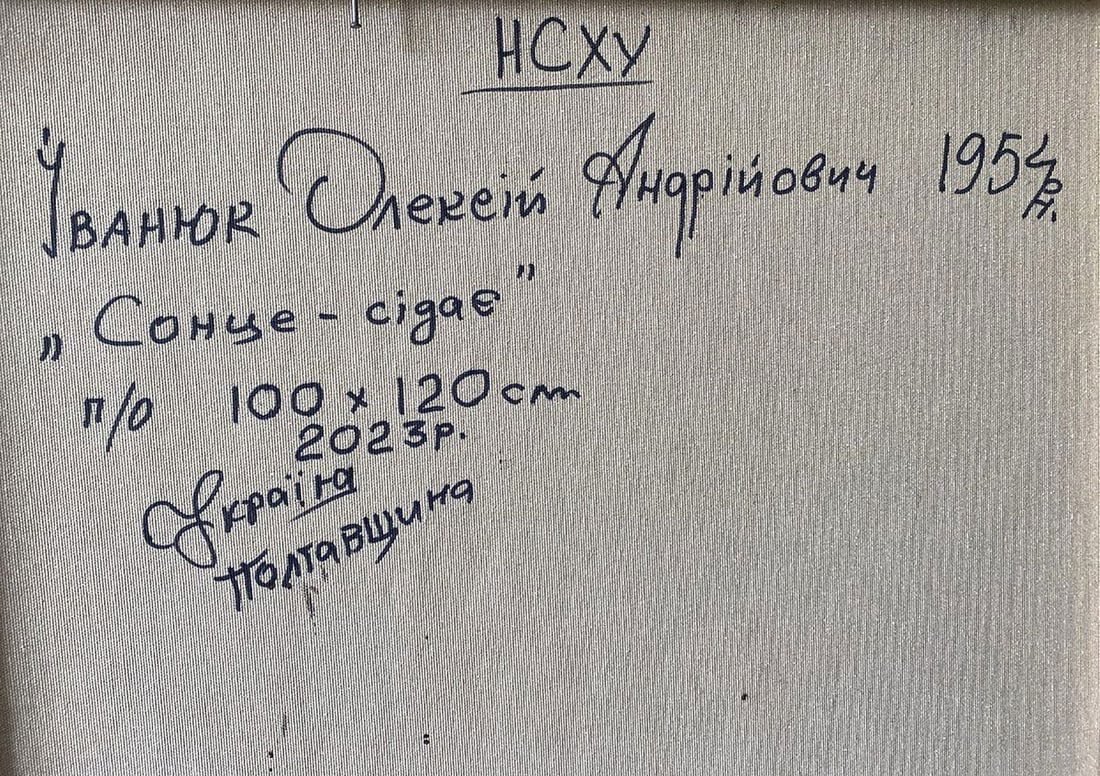 НСХУ
Іванюк Олексій Андрійович 1954 р.н.
„Сонце - сідає"
п/о 100 x 120 cm
2023р.
Україна
Полтавщина